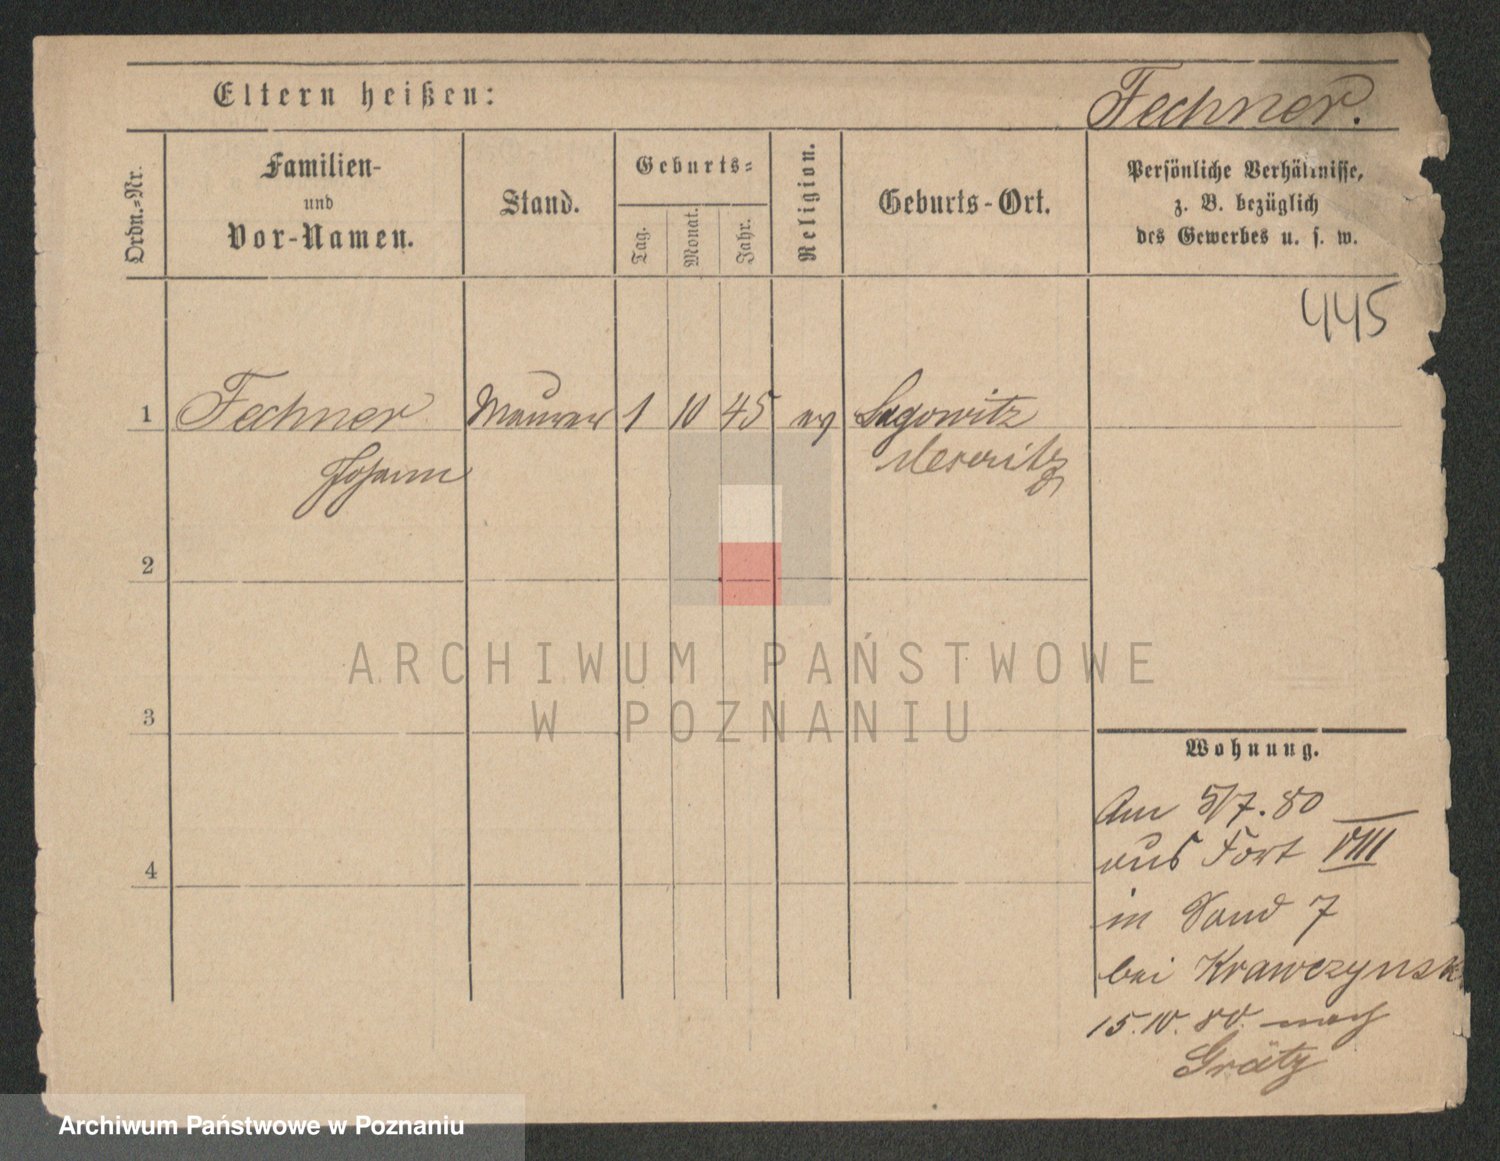 Eltern heißen:
Fechner.
Ordn.-Nr.
Familien-
und
Vor-Namen.
Stand.
Geburts-
Tag.
Monat.
Jahr.
Religion.
Geburts-Ort.
Persönliche Verhältnisse,
z. B. bezüglich
des Gewerbes u. s. w.
445
1 Fechner Maurer 1 10 45 ev Lagowitz
Johann Meseritz
2
3
4
Wohnung.
Am 5/7. 80
aus Fort VIII
in Sand 7
bei Krawczynsk
15.10.80. nach
Grätz
ARCHIWUM PAŃSTWOWE
W POZNANIU
Archiwum Państwowe w Poznaniu